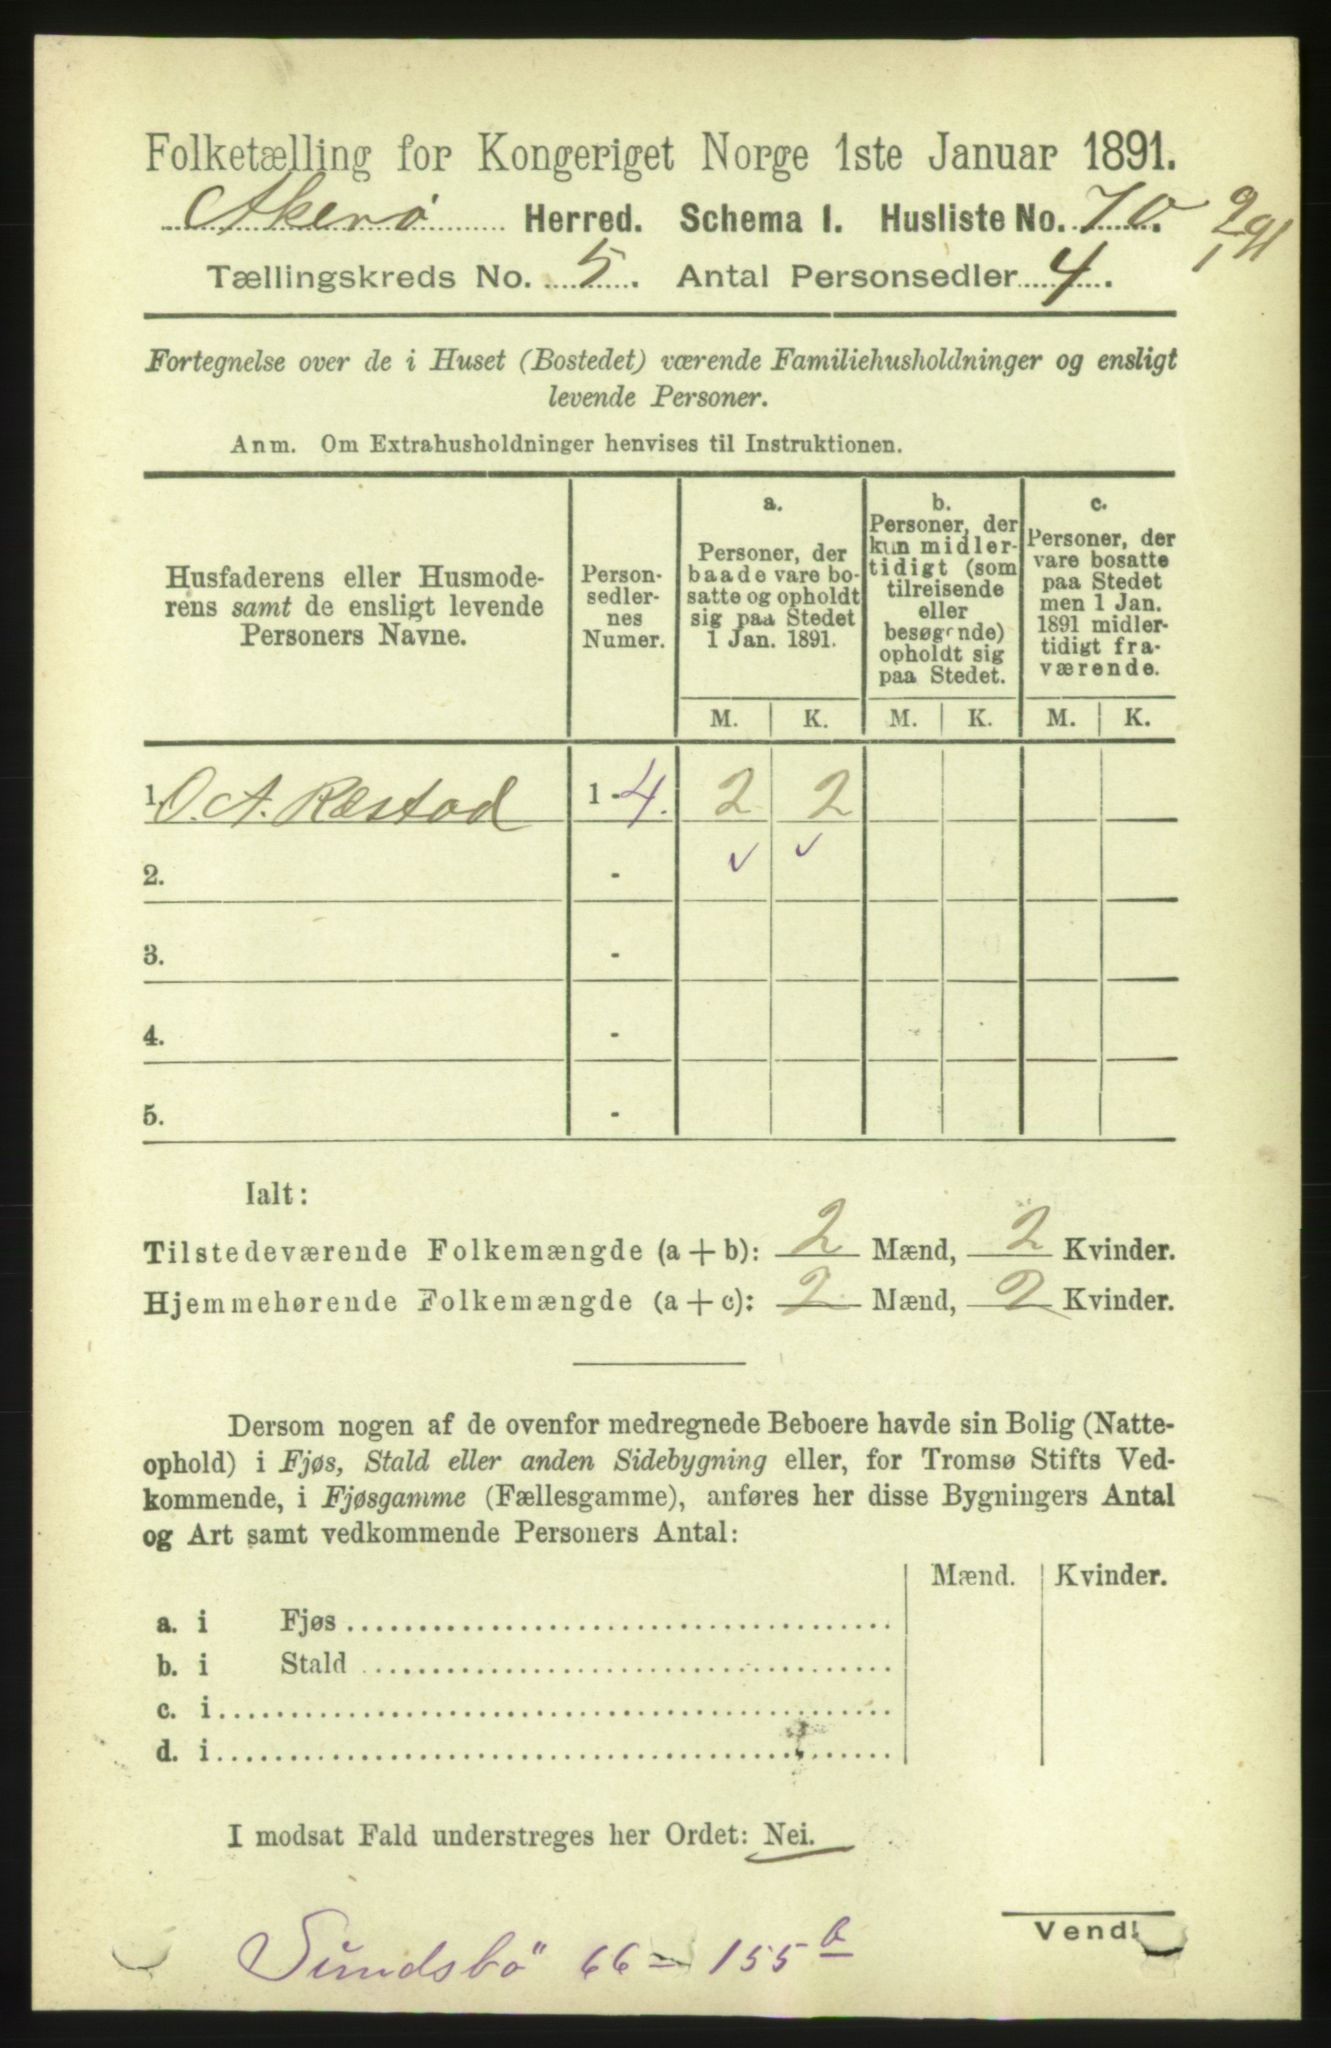 Folketælling for Kongeriget Norge 1ste Januar 1891.
Akerø Herred. Schema I. Husliste No. 70.
Tællingskreds No. 5. Antal Personsedler 4.
Fortegnelse over de i Huset (Bostedet) værende Familiehusholdninger og ensligt
levende Personer.
Anm. Om Extrahusholdninger henvises til Instruktionen.
Husfaderens eller Husmode-
rens samt de ensligt levende
Personers Navne.
Person-
sedler-
nes
Numer.
a.
Personer, der
baade vare bo-
satte og opholdt
sig paa Stedet
1 Jan. 1891.
b.
Personer, der
kun midler-
tidigt (som
tilreisende
eller
besøgende)
opholdt sig
paa Stedet.
c.
Personer, der
vare bosatte
paa Stedet
men 1 Jan.
1891 midler-
tidigt fra-
værende.
M. K. M. K. M. K.
1. O. A.Ræstad 1 - 4. 2 2
2. -
3. -
4. -
5. -
Ialt:
Tilstedeværende Folkemængde (a + b): 2 Mænd, 2 Kvinder.
Hjemmehørende Folkemængde (a + c): 2 Mænd, 2 Kvinder.
Dersom nogen af de ovenfor medregnede Beboere havde sin Bolig (Natte-
ophold) i Fjøs, Stald eller anden Sidebygning eller, for Tromsø Stifts Ved-
kommende, i Fjøsgamme (Fællesgamme), anføres her disse Bygningers Antal
og Art samt vedkommende Personers Antal:
Mænd. Kvinder.
a. i Fjøs
b. i Stald
c. i
d. i
I modsat Fald understreges her Ordet: Nei.
Vend!
Sundsbö 66 - 155